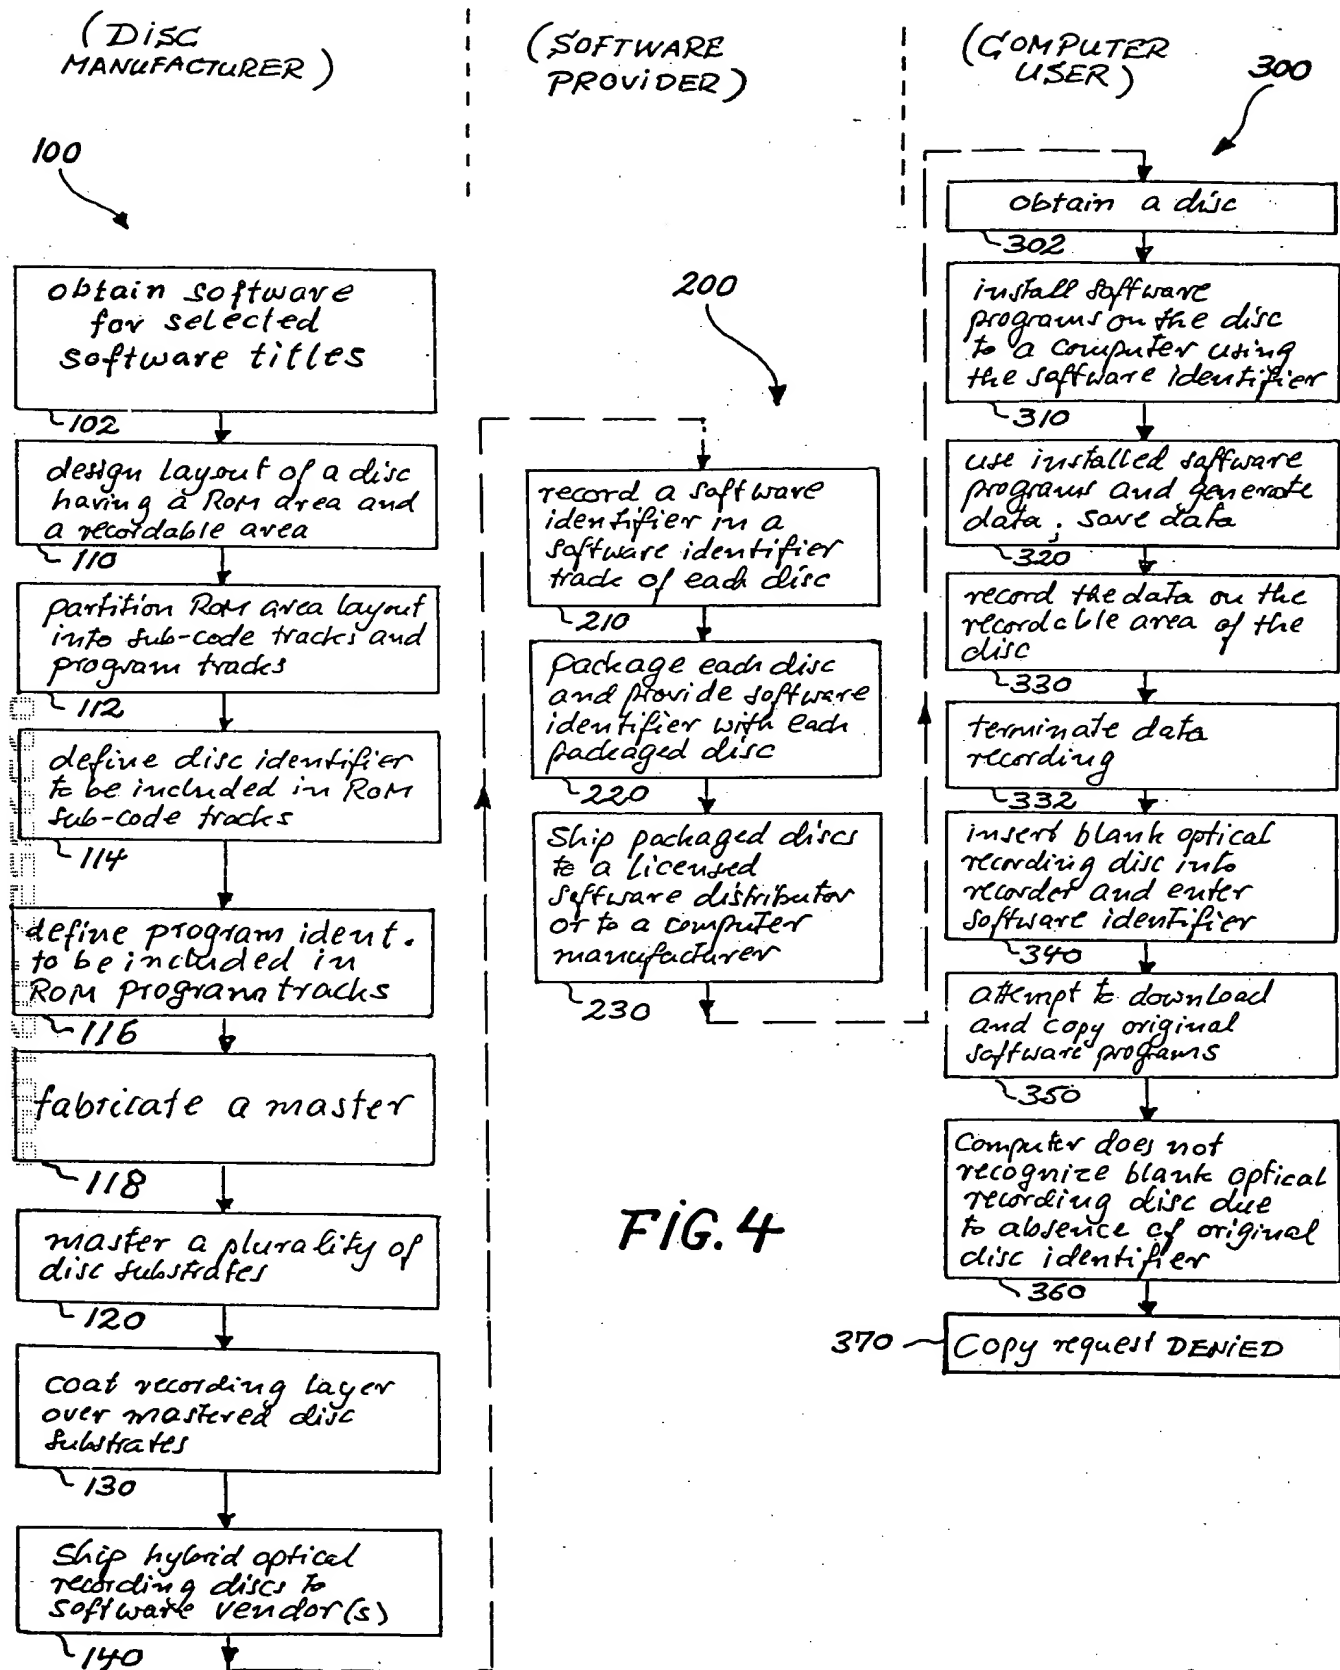 (DISC
MANUFACTURER)
100
obtain software
for selected
software titles
102
design layout of a disc
having a ROM area and
a recordable area
110
partition ROM area layout
into sub-code tracks and
program tracks
112
define disc identifier
to be included in ROM
sub-code tracks
114
define program ident.
to be included in
ROM program tracks
116
fabricate a master
118
master a plurality of
disc substrates
120
coat recording layer
over mastered disc
substrates
130
Ship hybrid optical
recording discs to
software vendor(s)
140
(SOFTWARE
PROVIDER)
200
record a software
identifier in a
software identifier
track of each disc
210
Package each disc
and provide software
identifier with each
packaged disc
220
Ship packaged discs
to a licensed
software distributor
or to a computer
manufacturer
230
(COMPUTER
USER)
300
obtain a disc
302
install software
programs on the disc
to a computer using
the software identifier
310
use installed software
programs and generate
data; save data
320
record the data on the
recordable area of the
disc
330
terminate data
recording
332
insert blank optical
recording disc into
recorder and enter
software identifier
340
attempt to download
and copy original
software programs
350
Computer does not
recognize blank optical
recording disc due
to absence of original
disc identifier
360
370
Copy request DENIED
FIG. 4